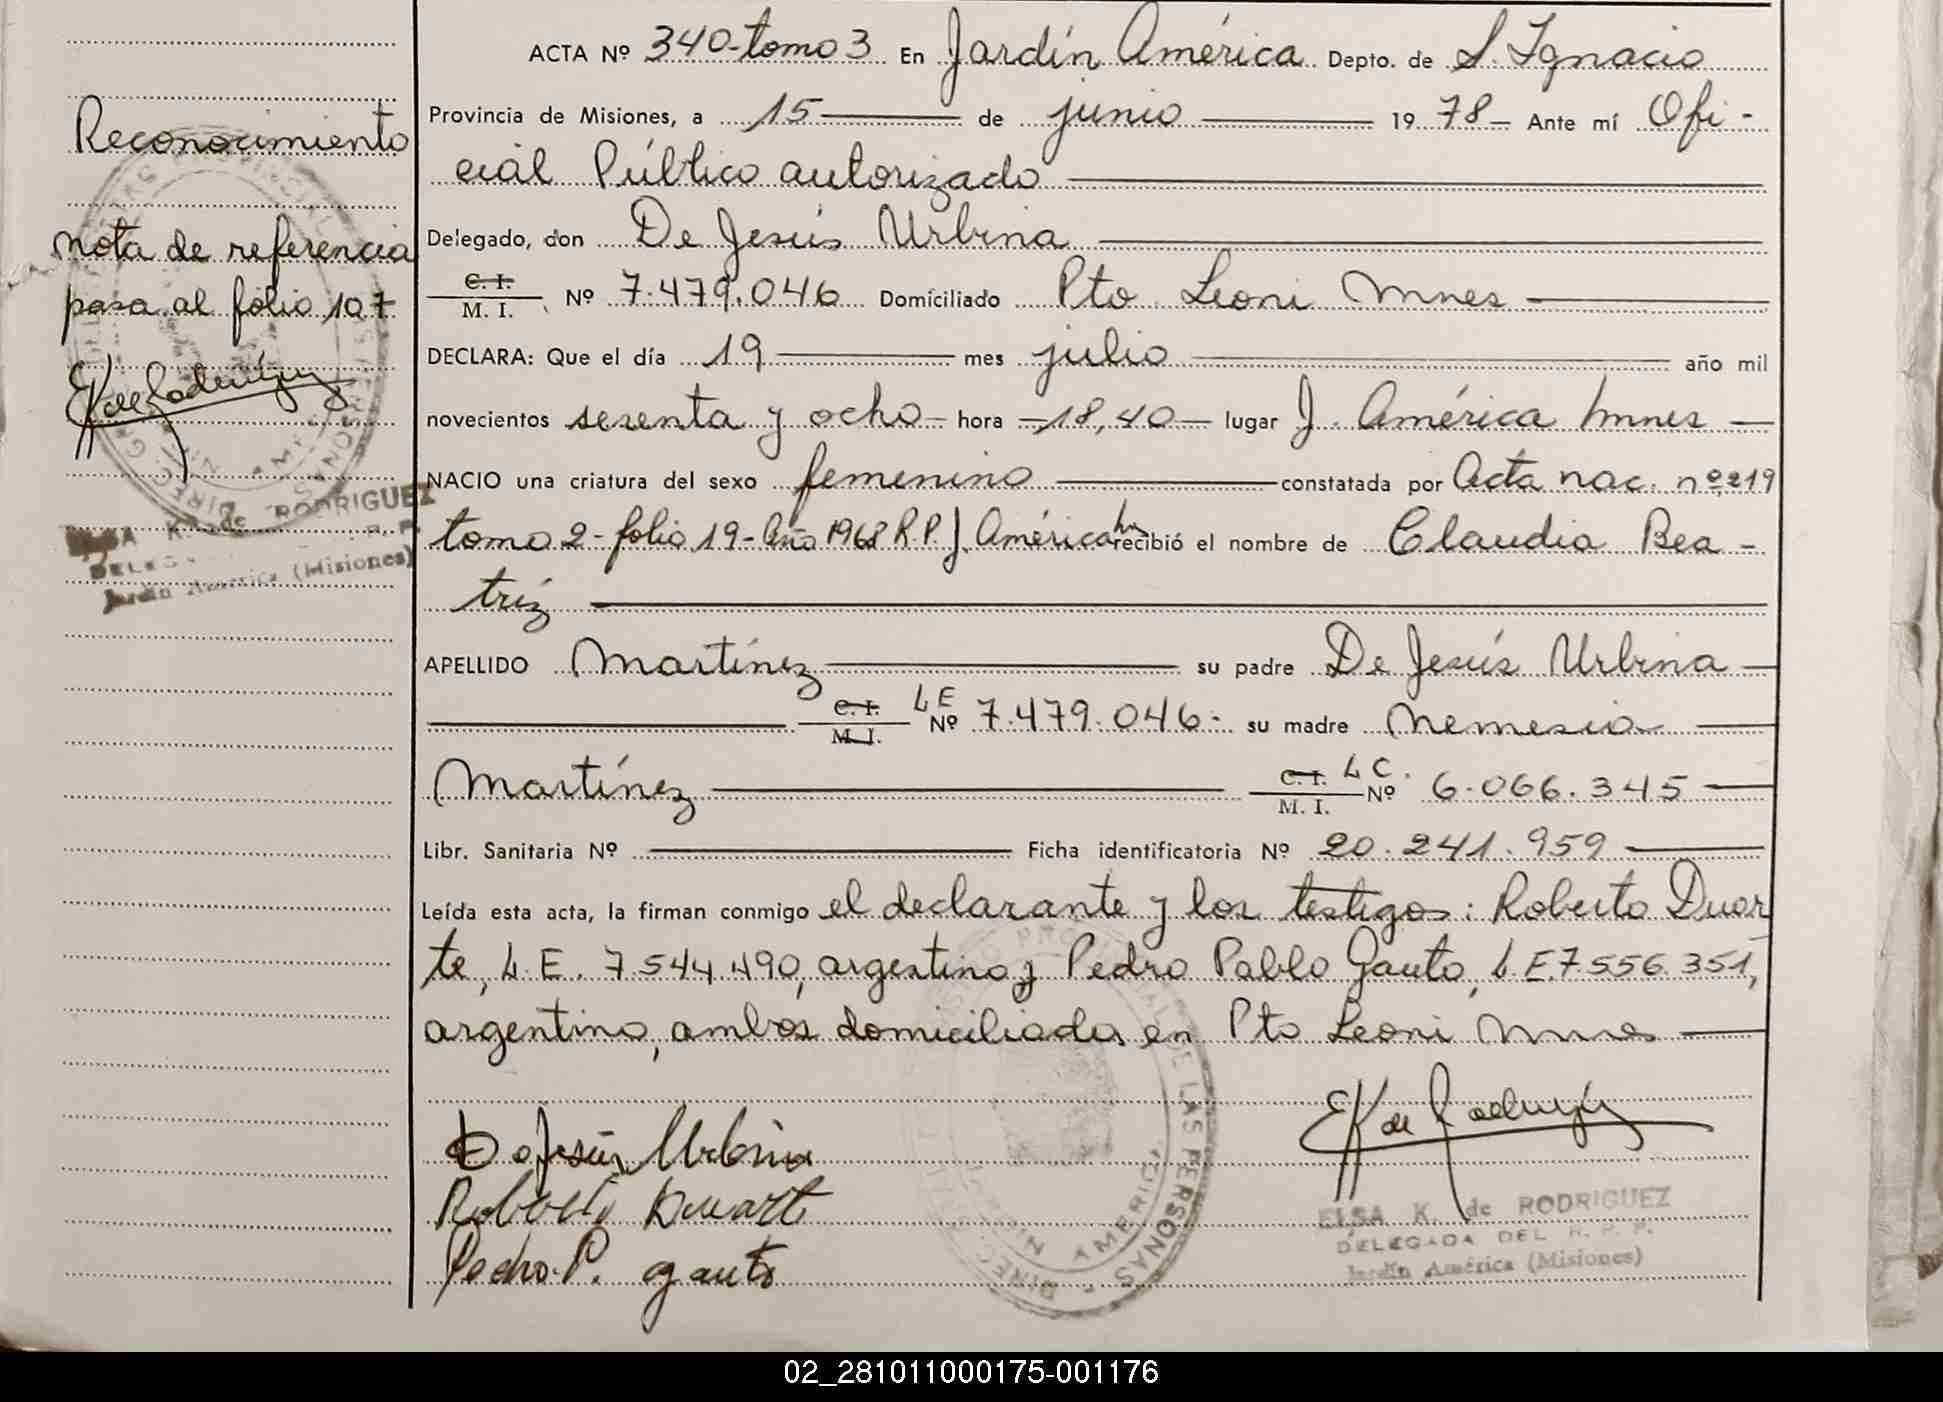 ACTA Nº 340-tomo 3 En Jardín América Depto. de S. Ignacio
Provincia de Misiones, a 15 de junio 1978 Ante mí Ofi-
cial Público autorizado
Delegado, don De Jesús Urbina
C. I. M. I. Nº 7.479.046 Domiciliado Pto Leoni Mnes
DECLARA: Que el día 19 mes julio año mil
novecientos sesenta y ocho hora 18,40 lugar J. América Mnes
NACIO una criatura del sexo femenino constatada por Acta nac. nº 219
tomo 2 - folio 19 - Año 1968 R.P. J. América recibió el nombre de Claudia Bea-
triz
APELLIDO Martínez su padre De Jesús Urbina
C. I. M. I. LE Nº 7.479.046 su madre Nemesia
Martínez C. I. M. I. LC. Nº 6.066.345
Libr. Sanitaria Nº Ficha identificatoria Nº 20.241.959
Leída esta acta, la firman conmigo el declarante y los testigos: Roberto Duar
te, L.E. 7.544.490, argentino y Pedro Pablo Gauto, L.E. 7.556.351,
argentino, ambos domiciliados en Pto Leoni Mnes
De Jesús Urbina
Roberto Duarte
Pedro P. Gauto
EK de Rodríguez
ELSA K. de RODRIGUEZ
DELEGADA DEL R. P. P.
Jardín América (Misiones)
Reconocimiento
nota de referencia
pasa al folio 107
EK de Rodríguez
ELSA K. de RODRIGUEZ
Jardín América (Misiones)
02_281011000175-001176